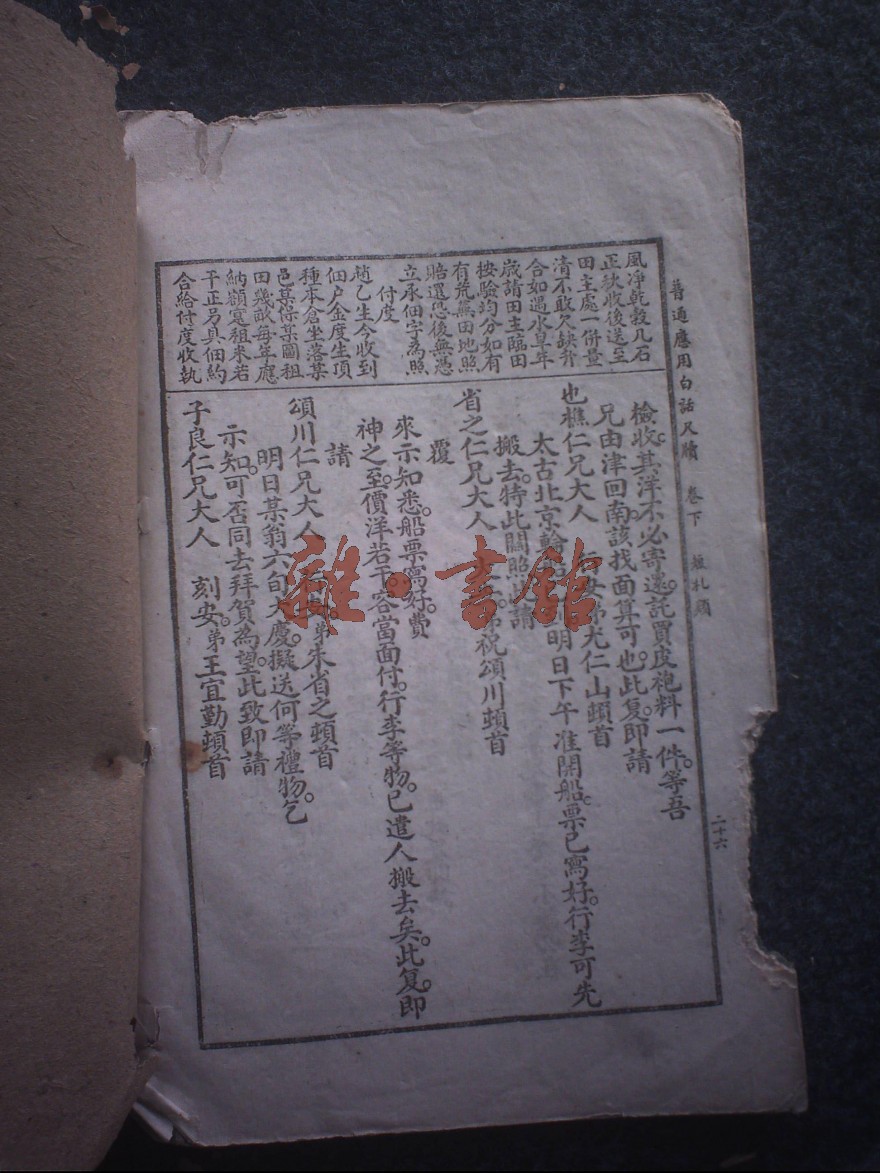 普通應用白話尺牘 卷下 短札類
二十六
風淨乾穀几石
正秋收後送至
田主處一併量
清不敢欠缺升
合如遇水旱年
歲請田主臨田
按驗均分如有
有荒蕪田地照
賠還恐後無憑
立承佃字為照
付度
趙乙生今收到
佃户金度生項
種本倉坐落某
邑某保某圖租
田幾畝每年應
納額寔租米若
干正另具佃約
合給付度收執
檢收。其洋不必寄還。託買皮袍料一件。等吾
兄由津回南。該找面算可也。此复。即請
也樵仁兄大人 安弟尤仁山頓首
太古北京輪 明日下午准開船。票已寫好。行李可先
搬去。特此關照。此請
省之仁兄大人 弟祝頌川頓首
覆
來示知悉。船票寫好。費
神之至。價洋若干。容當面付。行李等物。已遣人搬去矣。此复。即
請
頌川仁兄大人 弟朱省之頓首
明日某翁六旬大慶。擬送何等禮物。乞
示知。可否同去拜賀為望。此致即請
子良仁兄大人 刻安。弟王宜勤頓首
雜·書館